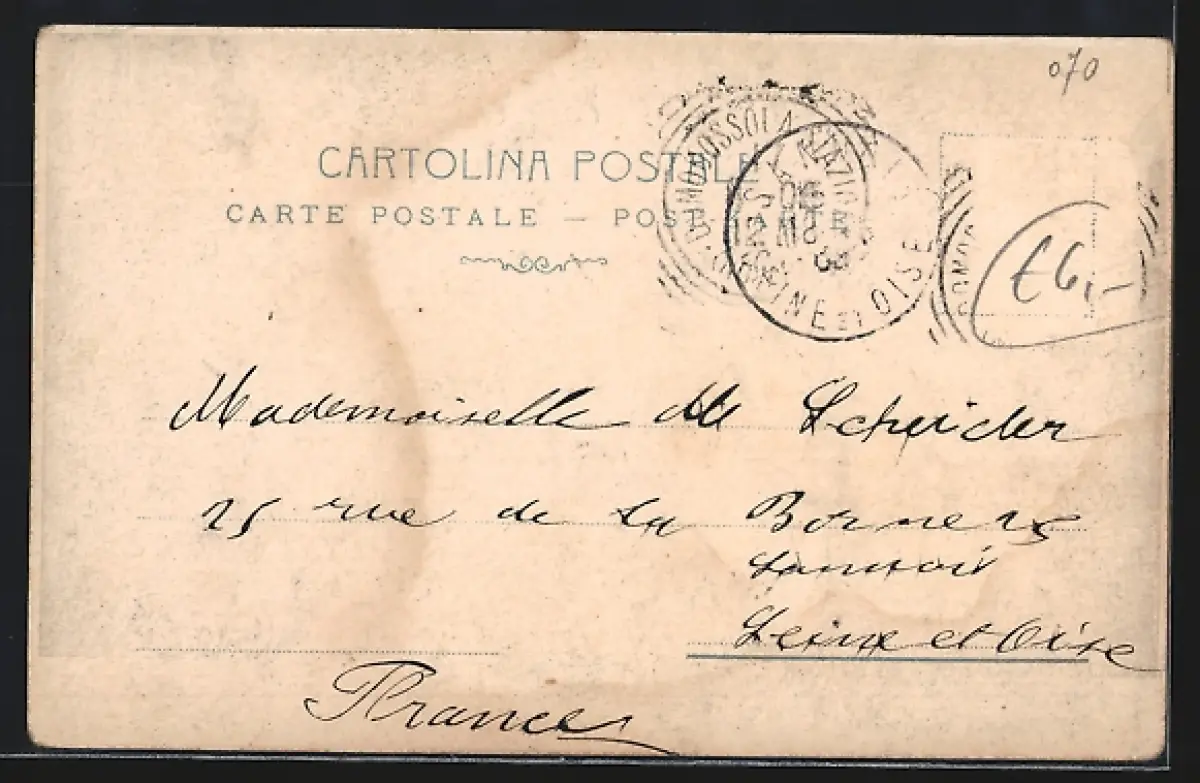 070
CARTOLINA POSTALE
CARTE POSTALE — POSTKARTE
DOMODOSSOLA STAZIONE
SEINE ET OISE
£6,-
Mademoiselle de Scheider
25 rue de la Borne 25
Sannois
Seine et Oise
France